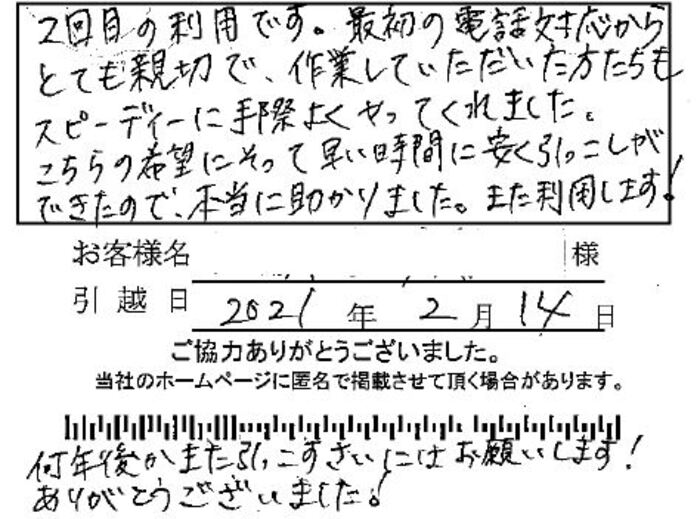 2回目の利用です。最初の電話対応から
とても親切で、作業していただいた方たちも
スピーディーに手際よくやってくれました。
こちらの希望にそって早い時間に安く引っこしが
できたので、本当に助かりました。また利用します!
お客様名 様
引越日 2021年 2月 14日
ご協力ありがとうございました。
当社のホームページに匿名で掲載させて頂く場合があります。
何年後かまた引っこすさいにはお願いします!
ありがとうございました!